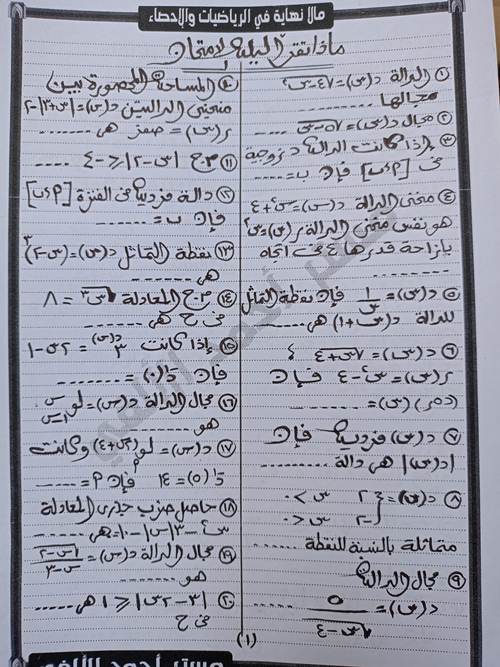 مالا نهاية في الرياضيات والإحصاء
ماذا تقرأ ليلة الامتحان
① الدالة د(س) = √٤-س²
مجالها ........
② مجال د(س) = √٥-س ........
③ إذا كانت الدالة د زوجية
فى [٢،ب] فإن ب = ........
④ منحنى الدالة د(س) = س²+٤
هو نفس منحنى الدالة ر(س) = س²
بإزاحة قدرها ٤ فى اتجاه
........
⑤ د(س) = ١/س فإن نقطة التماثل
للدالة د(س+١) هى ........
⑥ د(س) = √س+٤ ،
ر(س) = س²-٤ فإن
(د∘ر)(س) = ........
⑦ د(س) فردية فإن
|د(س)| هى دالة ........
⑧ د(س) = { ٢ س > ٠
-٢ س < ٠
متماثلة بالنسبة للنقطة ........
⑨ مجال الدالة
د(س) = ٥/√س-٤ ........
⑩ المساحة المحصورة بين
منحنى الدالتين د(س) = |س+٣|-٢
ر(س) = صفر هى ........
⑪ م.ح |س-٢| ≥ -٤ ........
⑫ دالة فردية فى الفترة [٢،ب]
فإن ب = ........
⑬ نقطة التماثل د(س) = (س-٢)³
هى ........
⑭ م.ح المعادلة = ٨
فى ح هى ........
⑮ إذا كانت ٣ د(س) = ٢س-١
فإن د(٠) = ........
⑯ مجال الدالة د(س) = لو س
١-س
هو ........
⑰ د(س) = لو (س+٤) وكانت
= ١٤ فإن ٢ = ........
⑱ حاصل ضرب جذرى المعادلة
س²-٣|س|-١٠ = هى ........
⑲ مجال الدالة د(س) = √س-٢/س-٣
هو ........
⑳ |٣-٢س| ≥ ١ هى ........
فى ح
(١)
مستر أحمد الألفي